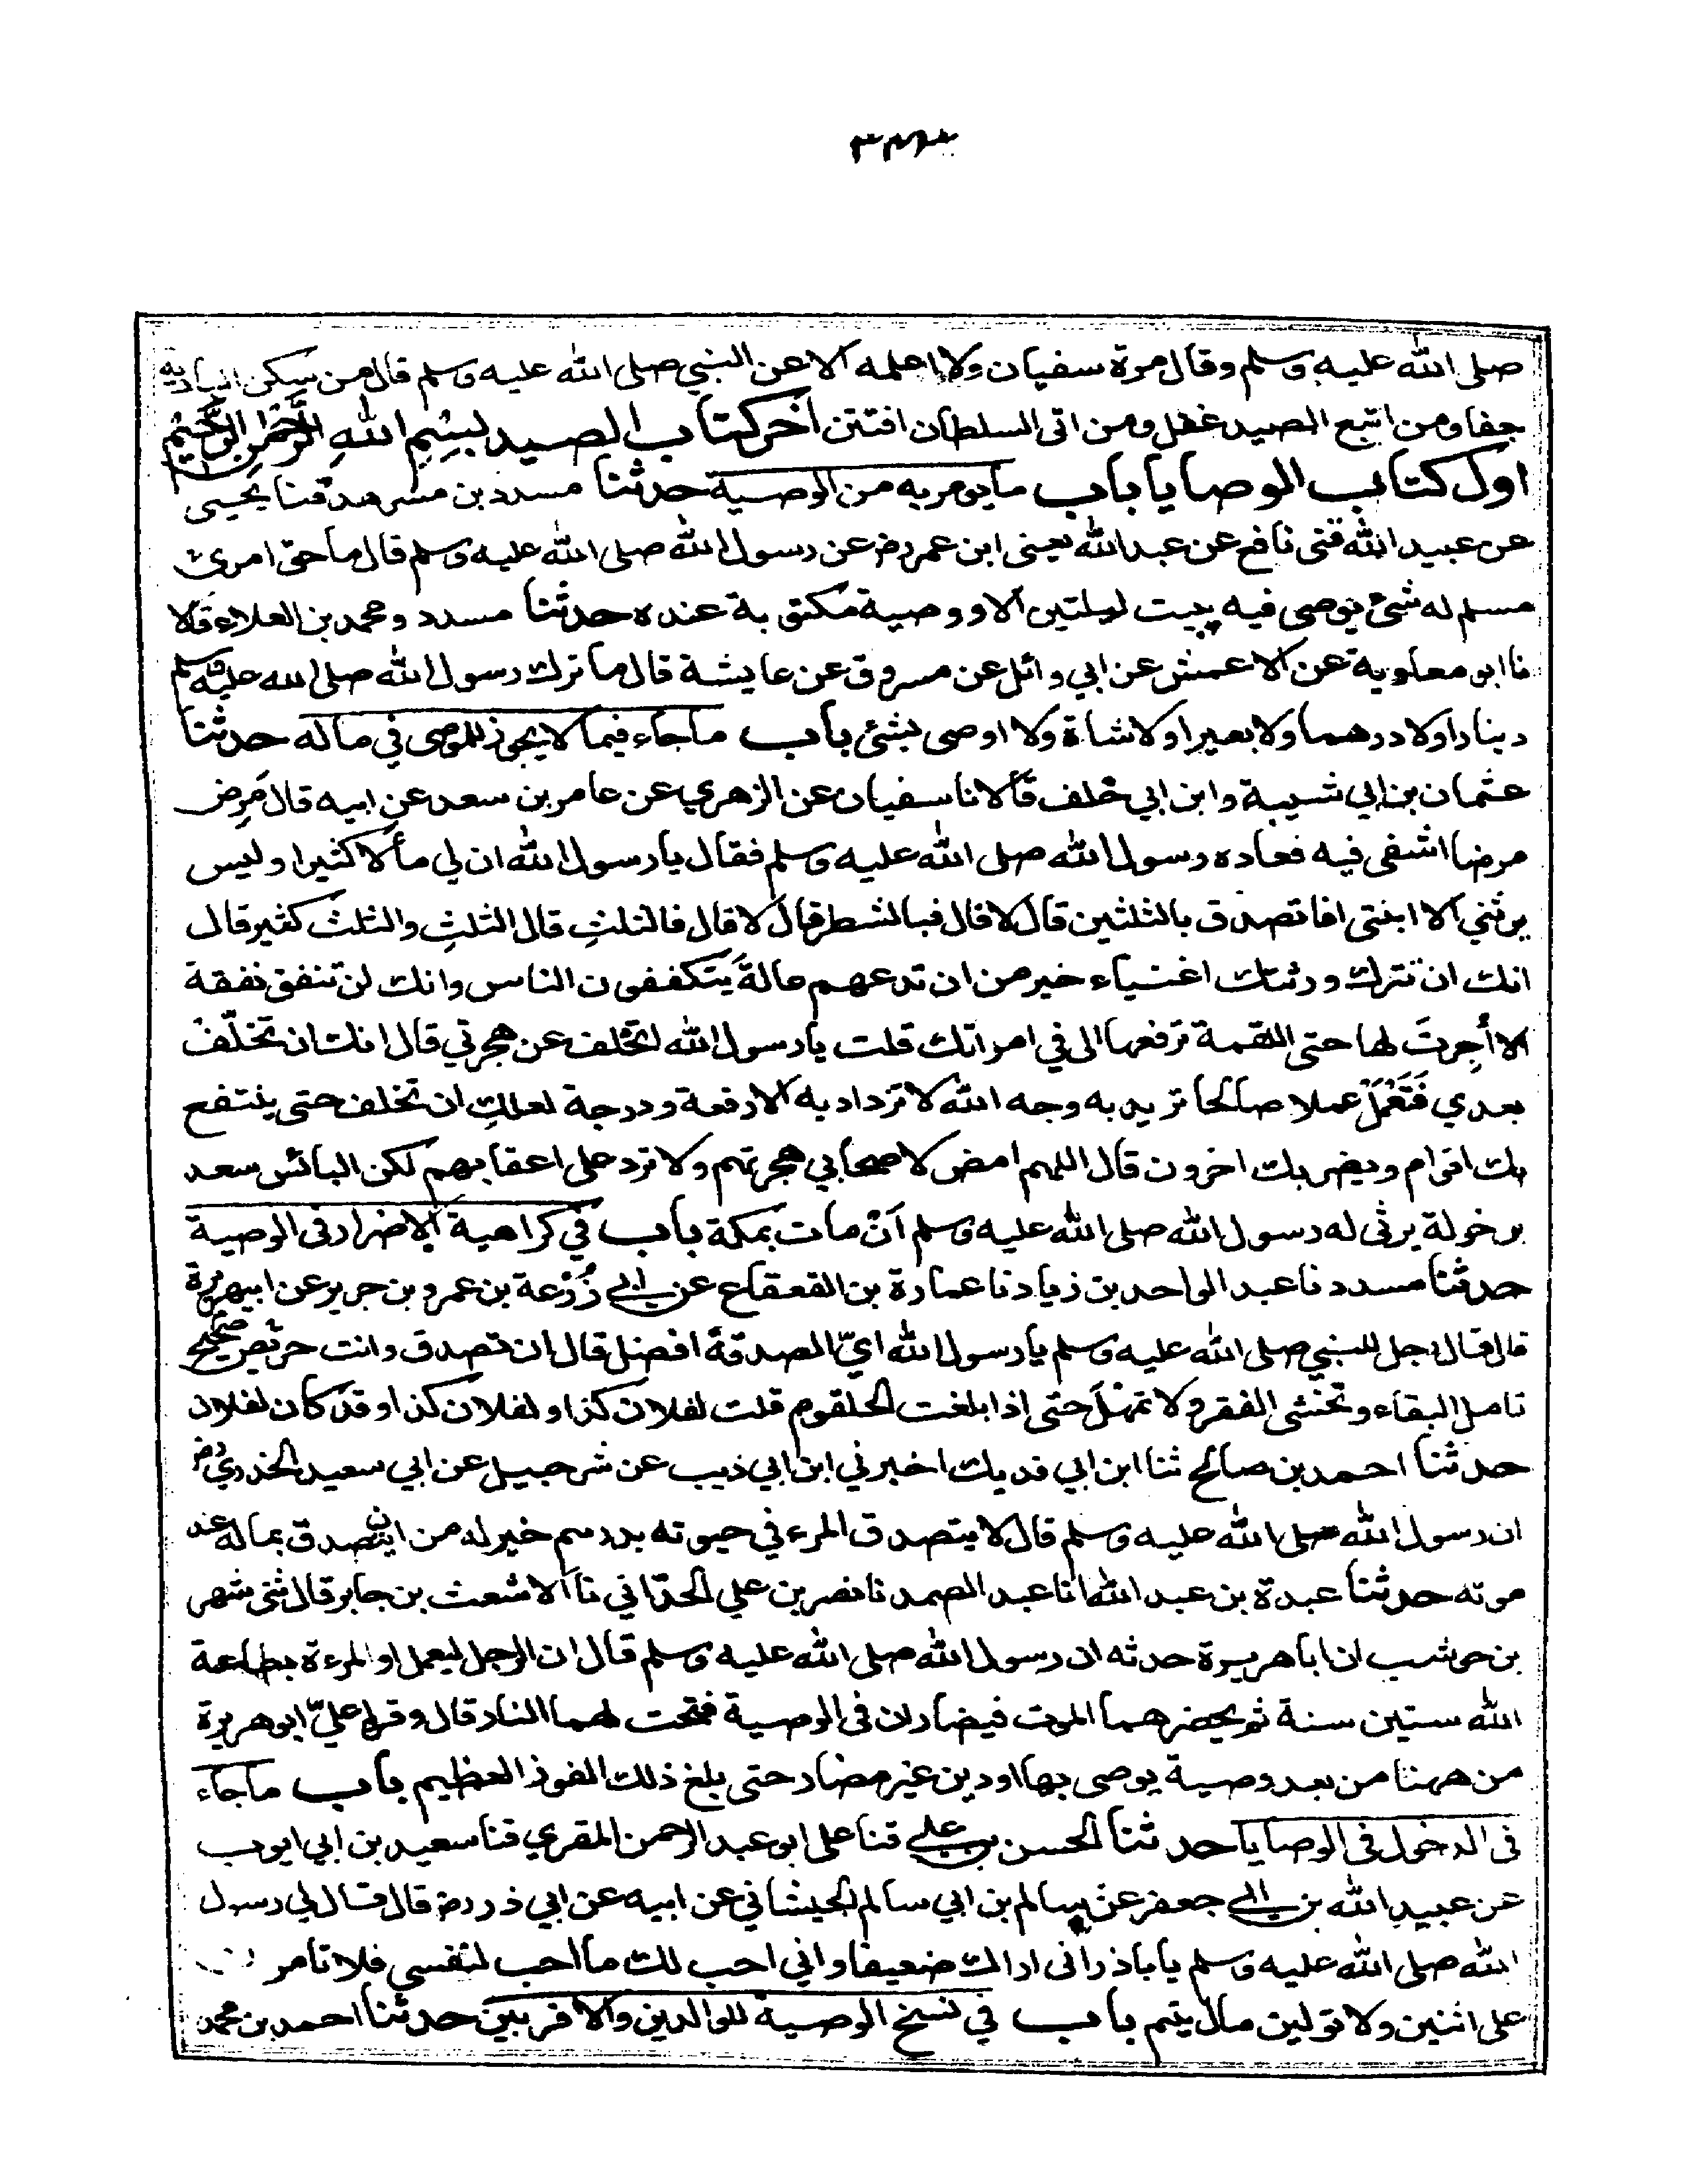 صلى الله عليه وسلم وقال مرة سفيان ولا اعلمه الا عن النبي صلى الله عليه وسلم قال من سكن البادية
جفا ومن اتبع الصيد غفل ومن اتى السلطان افتتن اخر كتاب الصيد بسم الله الرحمن الرحيم
اول كتاب الوصايا باب ما يومر به من الوصية حدثنا مسدد بن مسرهد ثنا يحيى
عن عبيد الله ثنى نافع عن عبد الله يعنى ابن عمر رض عن رسول الله صلى الله عليه وسلم قال ما حق امرئ
مسلم له شئ يوصى فيه يبيت ليلتين الا ووصية مكتوبة عنده حدثنا مسدد ومحمد بن العلاء قالا
نا ابو معاوية عن الاعمش عن ابي وائل عن مسروق عن عايشة قال ما ترك رسول الله صلى الله عليه وسلم
دينارا ولا درهما ولا بعيرا ولا شاة ولا اوصى بشئ باب ما جاء فيما لا يجوز للموصى في ماله حدثنا
عثمان بن ابي شيبة وابن ابي خلف قالا نا سفيان عن الزهري عن عامر بن سعد عن ابيه قال مَرِض
مرضا اشفى فيه فعاده رسول الله صلى الله عليه وسلم فقال يا رسول الله ان لي مالا كثيرا وليس
يرثني الا ابنتى افاتصدق بالثلثين قال لا قال فبالشطر قال لا قال فالثلثِ قال الثلثِ والثلث كثير قال
انك ان تترك ورثتك اغنياء خير من ان تدعهم عالةً يتكففون الناس وانك لن تنفق نفقة
الا أُجِرتَ لها حتى اللقمة ترفعها الى في امراتك قلت يا رسول الله اتخلف عن هجرتي قال انك ان تخلّف
بعدي فَتَعْمَلْ عملا صالحا تريد به وجه الله لا تزداد به الا رفعة ودرجة لعلك ان تخلف حتى ينتفع
بك اقوام ويضر بك اخرون قال اللهم امض لاصحابي هجرتهم ولا ترد على اعقابهم لكن البائس سعد
بر خولة يرثى له رسول الله صلى الله عليه وسلم اَنْ مات بمكة باب في كراهية الاضرار فى الوصية
حدثنا مسدد نا عبد الواحد بن زياد نا عمارة بن القعقاع عن ابي زُرْعة بن عمرو بن جرير عن ابي هريرة
قال قال رجل للنبي صلى الله عليه وسلم يا رسول الله ايّ الصدقة افضل قال ان تصدق وانت حريص صحيح
تامل البقاء وتخشى الفقر ولا تمهلَ حتى اذا بلغت الحلقوم قلت لفلان كذا ولفلان كذا وقد كان لفلان
حدثنا احمد بن صالح ثنا ابن ابي فديك اخبرني ابن ابي ذيب عن شرحبيل عن ابي سعيد الخدري رض
ان رسول الله صلى الله عليه وسلم قال لا يتصدق المرء في حيوته بدرهم خير له من ان يتصدق بماله عند
موته حدثنا عبدة بن عبد الله انا عبد الصمد نا نصر بن علي الحدّاني نا الاشعث بن جابر قال ثنى شهر
بن حوشب ان ابا هريرة حدثه ان رسول الله صلى الله عليه وسلم قال ان الرجل ليعمل او المرءة بطاعة
الله ستين سنة ثم يحضرهما الموت فيضاران فى الوصية فتحت لهما النار قال وقرا عليّ ابو هريرة
من ههنا من بعد وصية يوصى بها او دين غير مضار حتى بلغ ذلك الفوز العظيم باب ما جاء
فى الدخول فى الوصايا حدثنا الحسن بن علي ثنا على ابو عبد الرحمن المقري ثنا سعيد بن ابي ايوب
عن عبيد الله بن ابي جعفر عن سالم بن ابي سالم الجيشاني عن ابيه عن ابي ذر رض قال قال لي رسول
الله صلى الله عليه وسلم يا با ذر انى اراك ضعيفا واني احب لك ما احب لنفسي فلا تامر
على اثنين ولا تولين مال يتيم باب في نسخ الوصية للوالدين والاقربين حدثنا احمد بن محمد